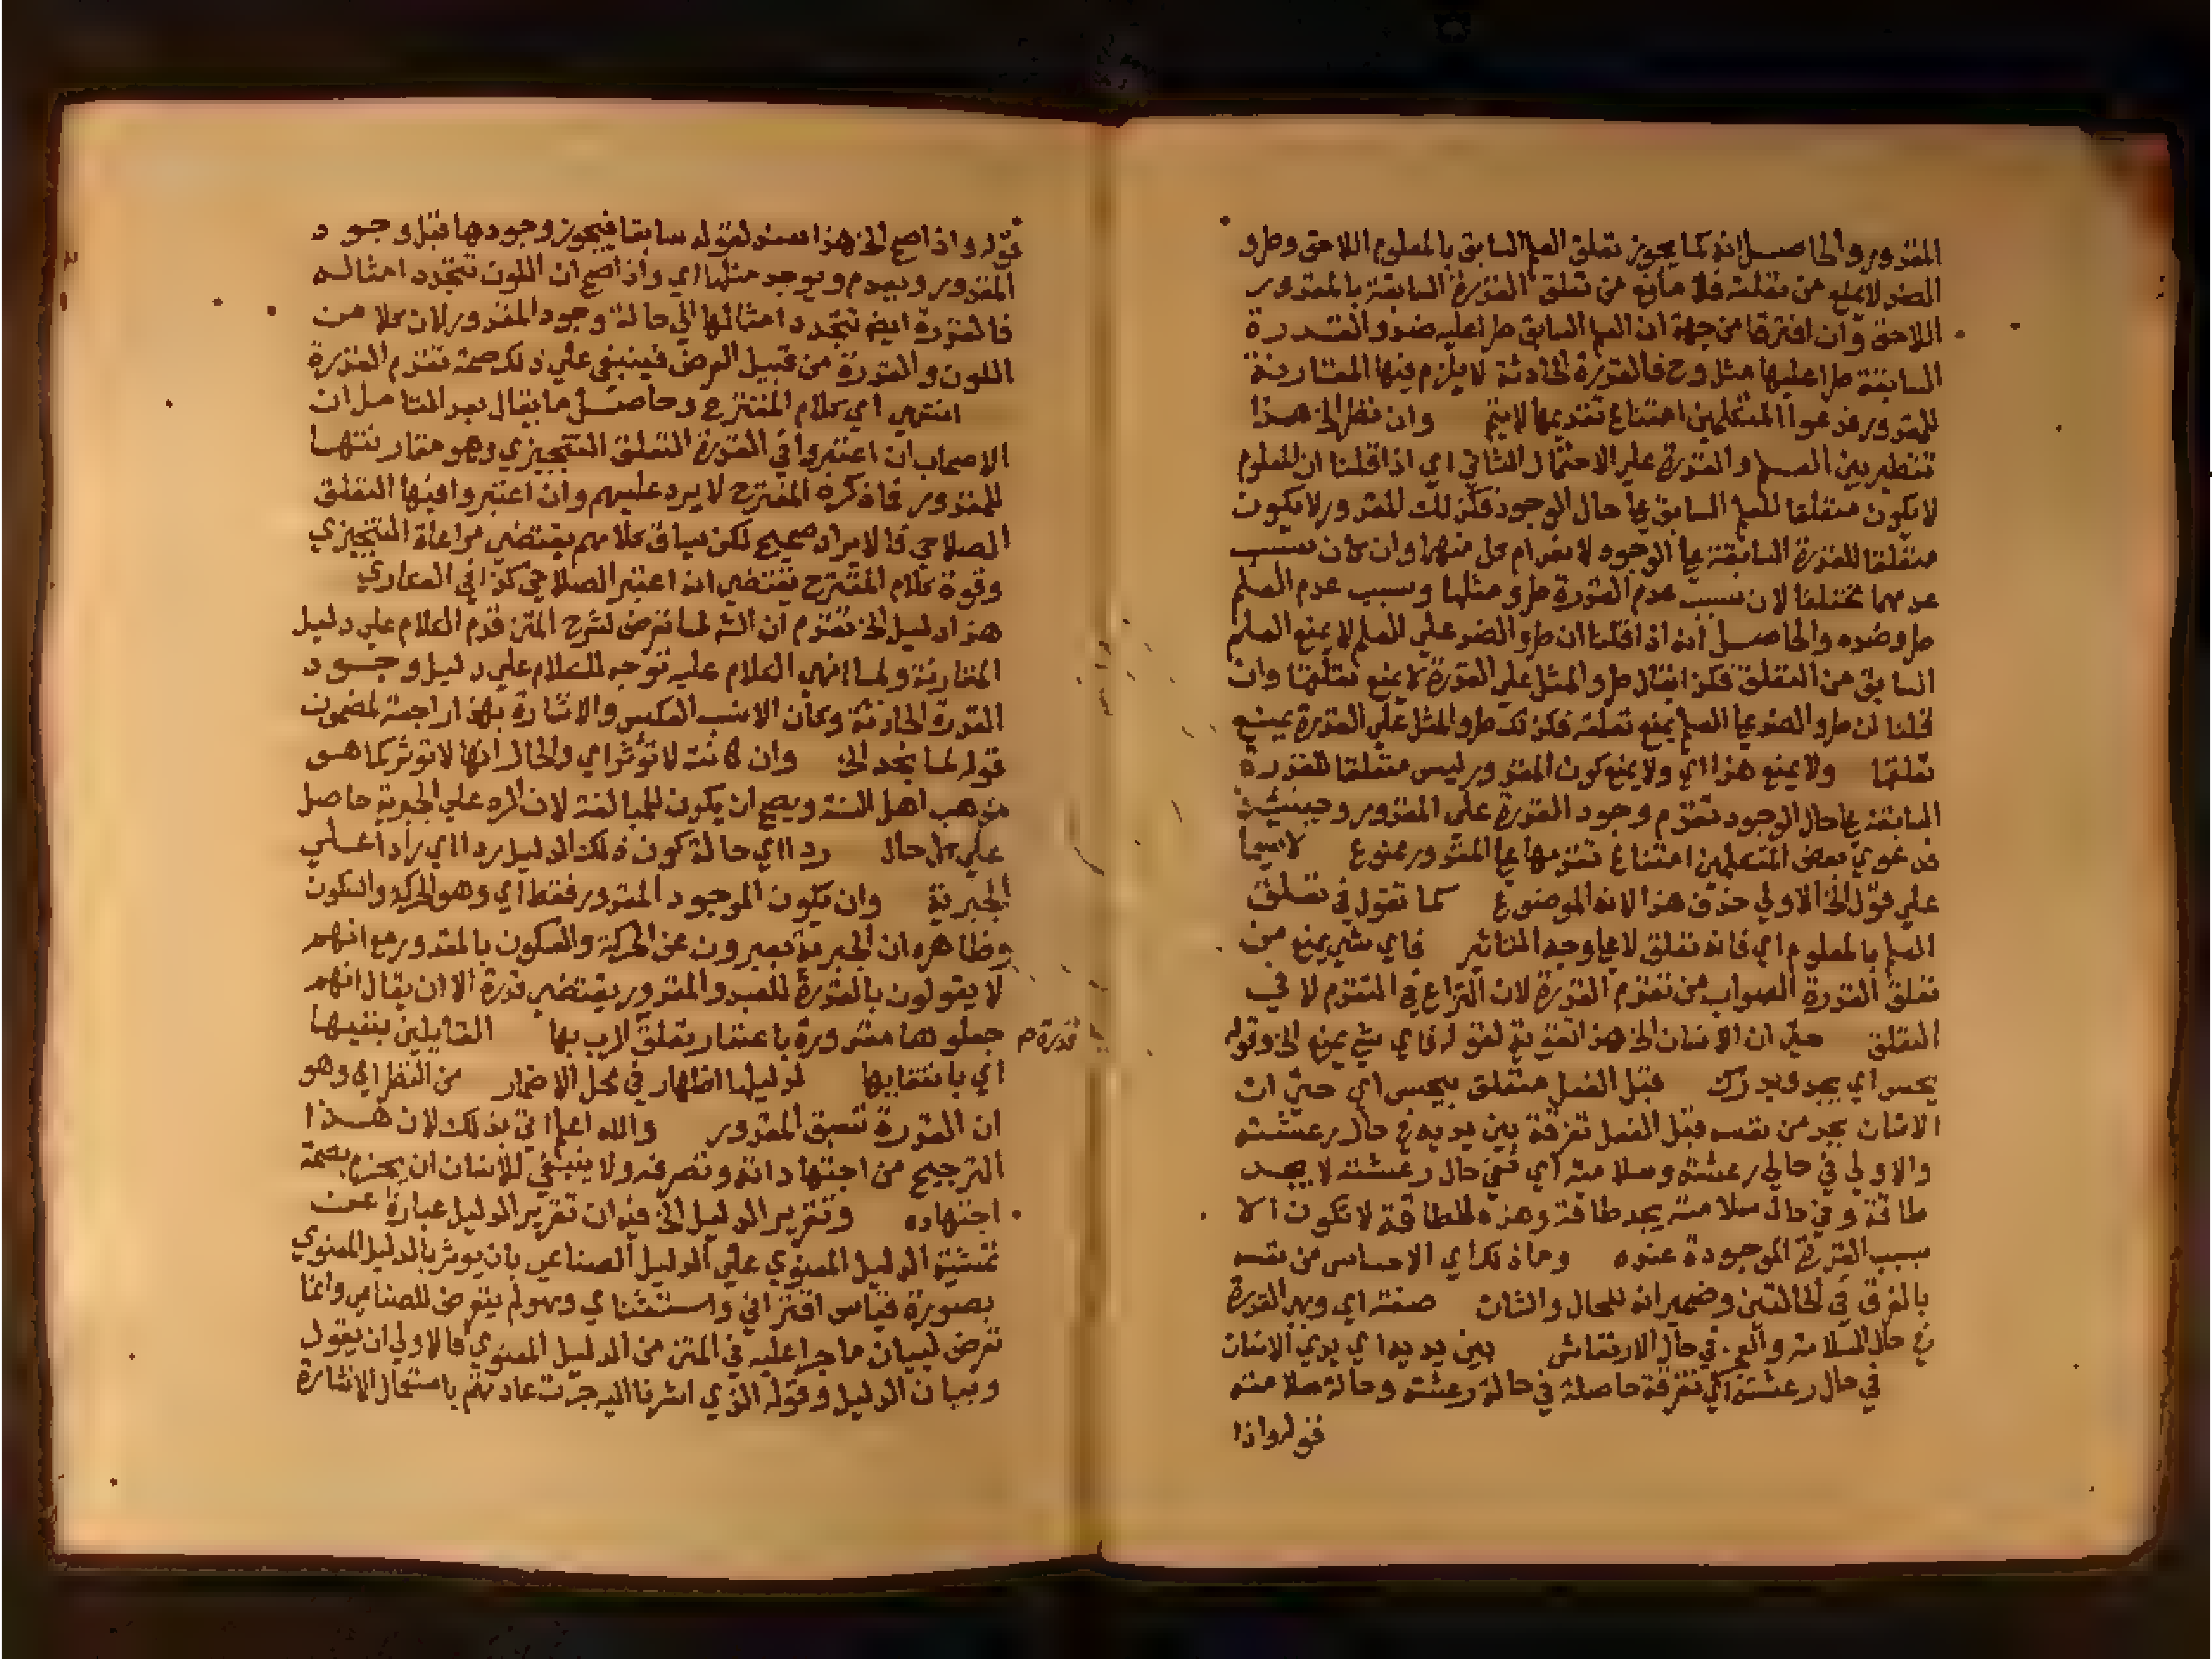 المقدور والحاصل انه كما يجوز تعلق العلم السابق بالمعلوم اللاحق وطرو
الضد لا يمنع من تعلقه فلا مانع من تعلق القدرة السابقة بالمقدور
اللاحق وان افترقا من جهة ان العلم السابق طرا عليه ضد والقدرة
السابقة طرا عليها مثل وح فالقدرة الحادثة لا يلزم فيها المقارنة
للمقدور فدعوا المتكلمين امتناع تقديمها لا يتم وان نظر الى هذا
تنظير بين العلم والقدرة على الاحتمال الثاني اي اذا قلنا ان المعلوم
لا يكون متعلقا للعلم السابق عا حال الوجود فكذلك المقدور لا يكون
متعلقا للقدرة السابقة عا الوجود لانعدام كل منهما وان كان سبب
عدمهما مختلفا لان سبب عدم القدرة طرو مثلها وسبب عدم العلم
طرو ضده والحاصل انه اذا قلنا ان طرو الضد علي العلم لا يمنع العلم
السابق من التعلق فكذا يقال طرو المثل علي القدرة لا يمنع تعلقها وان
قلنا ان طرو الضد عا العلم يمنع تعلقه فكذلك طرو المثل علي القدرة يمنع
تعلقها ولا يمنع هذا اي ولا يمنع كون المقدور ليس متعلقا للقدرة
السابقة عا حال الوجود تقدم وجود القدرة علي المقدور وحينئذ
فدعوي بعض المتكلمين امتناع تقدمها عا المقدور ممنوع لاسيما
علي قول الخ الاولي حذف هذا لانه الموضوع كما تقول في تعلق
العلم بالمعلوم اي فانه تعلق لا عا وجه التاثير فاي شي يمنع من
تعلق القدرة الصواب من تقدم القدرة لان النزاع في التقدم لا في
التعلق حتي ان الانسان الخ هذا تقوية لقوله فاي شي يمنع الخ وقوله
يحس اي يجد ويدرك قبل الفعل متعلق بيحس اي حتي ان
الانسان يجد من نفسه قبل الفعل تفرقة بين يديه في حال رعشته
والاولي في حالي رعشته وسلامته اي ففي حال رعشته لا يجد
طاقة وفي حال سلامته يجد طاقة وهذه الطاقة لا تكون الا
بسبب القدرة الموجودة عنده وما ذكر اي الاحساس من نفسه
بالفرق في الحالتين وضمير انه للحال والشان صفته اي وهي القدرة
في حال السلامة والعجز في حال الارتعاش بين يديه اي يدي الانسان
في حال رعشته اي تفرقة حاصلة في حالة رعشته وحالة سلامته
قوله واذا
قوله واذا صح الخ هذا سند لقوله سابقا فيجوز وجودها قبل وجود
المقدور ويعدم ويوجد مثلها اي واذا صح ان اللون تتجدد امثاله
فالقدرة ايضا تتجدد امثالها الي حالة وجود المقدور لان كلا من
اللون والقدرة من قبيل العرض فينبغي علي ذلك صحة تقدم القدرة
انتهي اي كلام المقترح وحاصل ما يقال بعد التامل ان
الاصحاب ان اعتبروا في القدرة التعلق التنجيزي وهو مقارنتها
للمقدور فما ذكره المقترح لا يرد عليهم وان اعتبروا فيها التعلق
الصلاحي فالايراد صحيح لكن سياق كلامهم يقتضي مراعاة التنجيزي
وقوة كلام المقترح تقتضي انه اعتبر الصلاحي كذا في السكتاري
هذا دليل الخ تقدم ان الش لما تعرض لشرح المتن قدم الكلام علي دليل
المقارنة ولما انهي الكلام عليه توجه للكلام علي دليل وجود
القدرة الحادثة وكان الانسب العكس والاشارة بهذا راجعة لمضمون
قوله لما نجد الخ وان كانت لا تؤثر اي والحال انها لا توثر كما هو
مذهب اهل السنة ويصح ان يكون للمبالغة لان الرد علي الجبرية حاصل
علي كل حال ردا اي حالة كون ذلك الدليل ردا اي رادا علي
الجبرية وان يكون الموجود المقدور فقط اي وهو الحركة والسكون
وظاهره ان الجبرية يعبرون عن الحركة والسكون بالمقدور مع انهم
لا يقولون بالقدرة للعبد والمقدور يقتضي قدرة الا ان يقال انهم
جعلوها مقدورة باعتبار تعلق الرب بها القايلين بنفيها
قدرة م
اي بانتفايها لدليلها اظهار في محل الاضمار من النظر اي وهو
ان القدرة تسبق المقدور والله اعلم اتي بذلك لان هذا
الترجيح من اجتهاداته وتصرفه ولا ينبغي للانسان ان يجزم بصحة
اجتهاده وتقرير الدليل الخ فيه ان تقرير الدليل عبارة عن
تمشية الدليل المعنوي علي الدليل الصناعي بان يوثر بالدليل المعنوي
بصورة قياس اقتراني واستثناي وهو لم يتعرض للصناعي وانما
تعرض لبيان ما جرا عليه في المتن من الدليل المعنوي فالاولي ان يقول
وبيان الدليل وقوله الذي اشرنا اليه جرت عادتهم باستعمال الاشارة